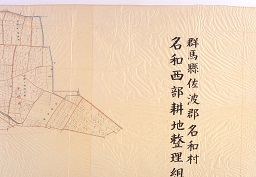 群馬縣佐波郡名和村
名和西部耕地整理組